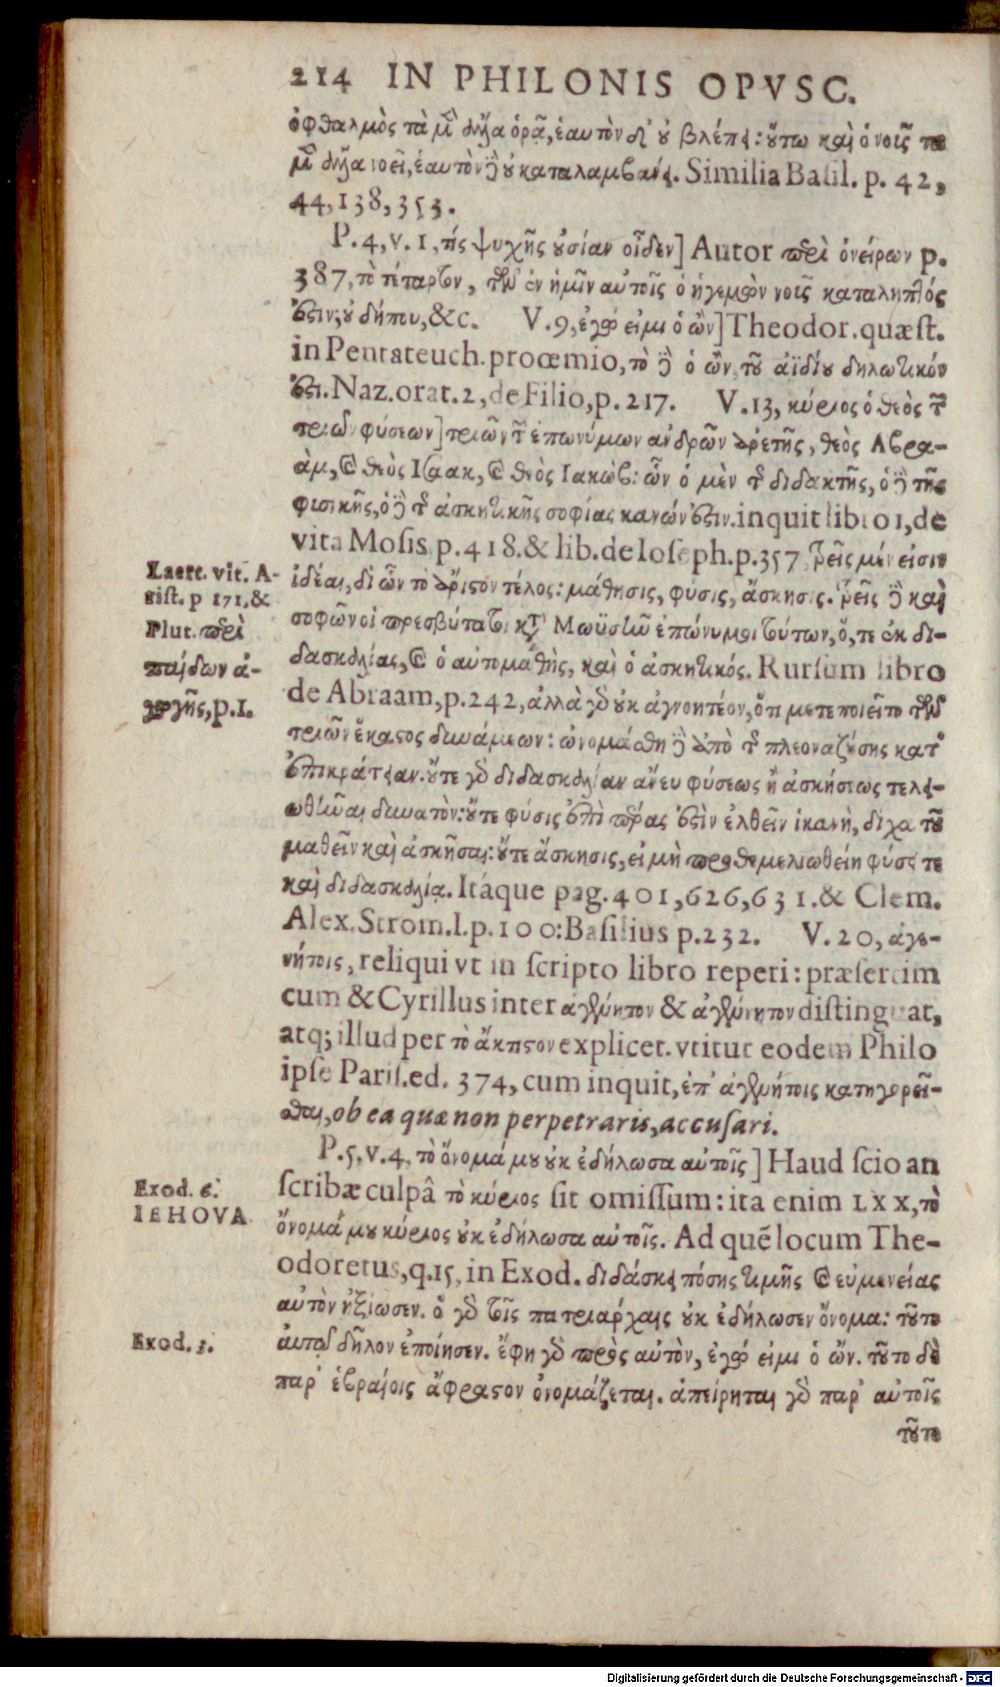 214 IN PHILONIS OPVSC.
ὀφθαλμὸς τὰ μ̀ ἄλλα ὁρᾷ, ἑαυτὸν δὲ οὐ βλέπει: οὕτω καὶ ὁ νοῦς τὰ
μ̀ ἄλλα νοεῖ, ἑαυτὸν δὲ οὐ καταλαμβάνει. Similia Basil. p. 42,
44, 138, 353.
P. 4, v. 1, τίς ψυχῆς οὐσίαν οἶδεν] Autor περὶ ὀνείρων p.
387, τὸ τέταρτον, τῶν ἐν ἡμῖν αὐτοῖς ὁ ἡγεμὼν νοῦς καταληπτός
ἐστιν; οὐ δήπου, &c. V. 9, ἐγώ εἰμι ὁ ὢν] Theodor. quæst.
in Pentateuch. proœmio, τὸ δὲ ὁ ὢν, τοῦ ἀϊδίου δηλωτικόν
ἐστι. Naz. orat. 2, de Filio, p. 217. V. 13, κύριος ὁ θεὸς τ̃
τριῶν φύσεων] τριῶν τ̃ ἐπωνύμων ἀνδρῶν ἀρετῆς, θεὸς Αβρα-
ὰμ, καὶ θεὸς Ισαακ, καὶ θεὸς Ιακώβ: ὧν ὁ μὲν τῆς διδακτῆς, ὁ δὲ τῆς
φυσικῆς, ὁ δὲ τῆς ἀσκητικῆς σοφίας κανών ἐστιν. inquit libro 1, de
vita Mosis p. 418. & lib. de Ioseph. p. 357 τρεῖς μέν εἰσιν
ἰδέαι, δι ὧν τὸ ἄριστον τέλος: μάθησις, φύσις, ἄσκησις. τρεῖς δὲ καὶ
σοφῶν οἱ πρεσβύτατοι κατὰ Μωϋσῆν ἐπώνυμοι τούτων, ὅ, τε ἐκ δι-
δασκαλίας, καὶ ὁ αὐτομαθὴς, καὶ ὁ ἀσκητικός. Rursum libro
de Abraam, p. 242, ἀλλὰ γὰρ οὐκ ἀγνοητέον, ὅτι μετεποιεῖτο τῶν
τριῶν ἕκαστος δυνάμεων: ὠνομάσθη δὲ ἀπὸ τῆς πλεοναζούσης κατ᾽
ἐπικράτειαν. οὔτε γὰρ διδασκαλίαν ἄνευ φύσεως ἢ ἀσκήσεως τελει-
ωθῆναι δυνατὸν: οὔτε φύσις ἐπὶ πέρας ἐστὶν ἐλθεῖν ἱκανὴ, δίχα τοῦ
μαθεῖν καὶ ἀσκῆσαι: οὔτε ἄσκησις, εἰ μὴ προθεμελιωθείη φύσει τε
καὶ διδασκαλίᾳ. Itáque pag. 401, 626, 631. & Clem.
Alex. Strom. I. p. 100: Basilius p. 232. V. 20, ἀγε-
νήτοις, reliqui vt in scripto libro reperi: præsertim
cum & Cyrillus inter ἀγένητον & ἀγέννητον distinguat,
atq; illud per τὸ ἄκτιστον explicet. vtitur eodem Philo
ipse Paris. ed. 374, cum inquit, ἐπ᾽ ἀγενήτοις κατηγορεῖ-
σθαι, ob ea quæ non perpetraris, accusari.
P. 5, v. 4, τὸ ὄνομά μου οὐκ ἐδήλωσα αὐτοῖς] Haud scio an
scribæ culpâ τὸ κύριος sit omissum: ita enim LXX, τὸ
ὄνομά μου κύριος οὐκ ἐδήλωσα αὐτοῖς. Ad quē locum The-
odoretus, q. 15, in Exod. διδάσκει πόσης τιμῆς καὶ εὐμενείας
αὐτὸν ἠξίωσεν. ὃ γὰρ τοῖς πατριάρχαις οὐκ ἐδήλωσεν ὄνομα: τοῦτο
αὐτῷ δῆλον ἐποίησεν. ἔφη γὰρ πρὸς αὐτὸν, ἐγώ εἰμι ὁ ὤν. τοῦτο δὲ
παρ᾽ ἑβραίοις ἄφραστον ὀνομάζεται. ἀπείρηται γὰρ παρ᾽ αὐτοῖς
τοῦτο
Laert. vit. A-
rist. p 171, &
Plut. περὶ
παίδων ἀ-
γωγῆς, p. 1.
Exod. 6.
IEHOVA
Exod. 3.
Digitalisierung gefördert durch die Deutsche Forschungsgemeinschaft - DFG